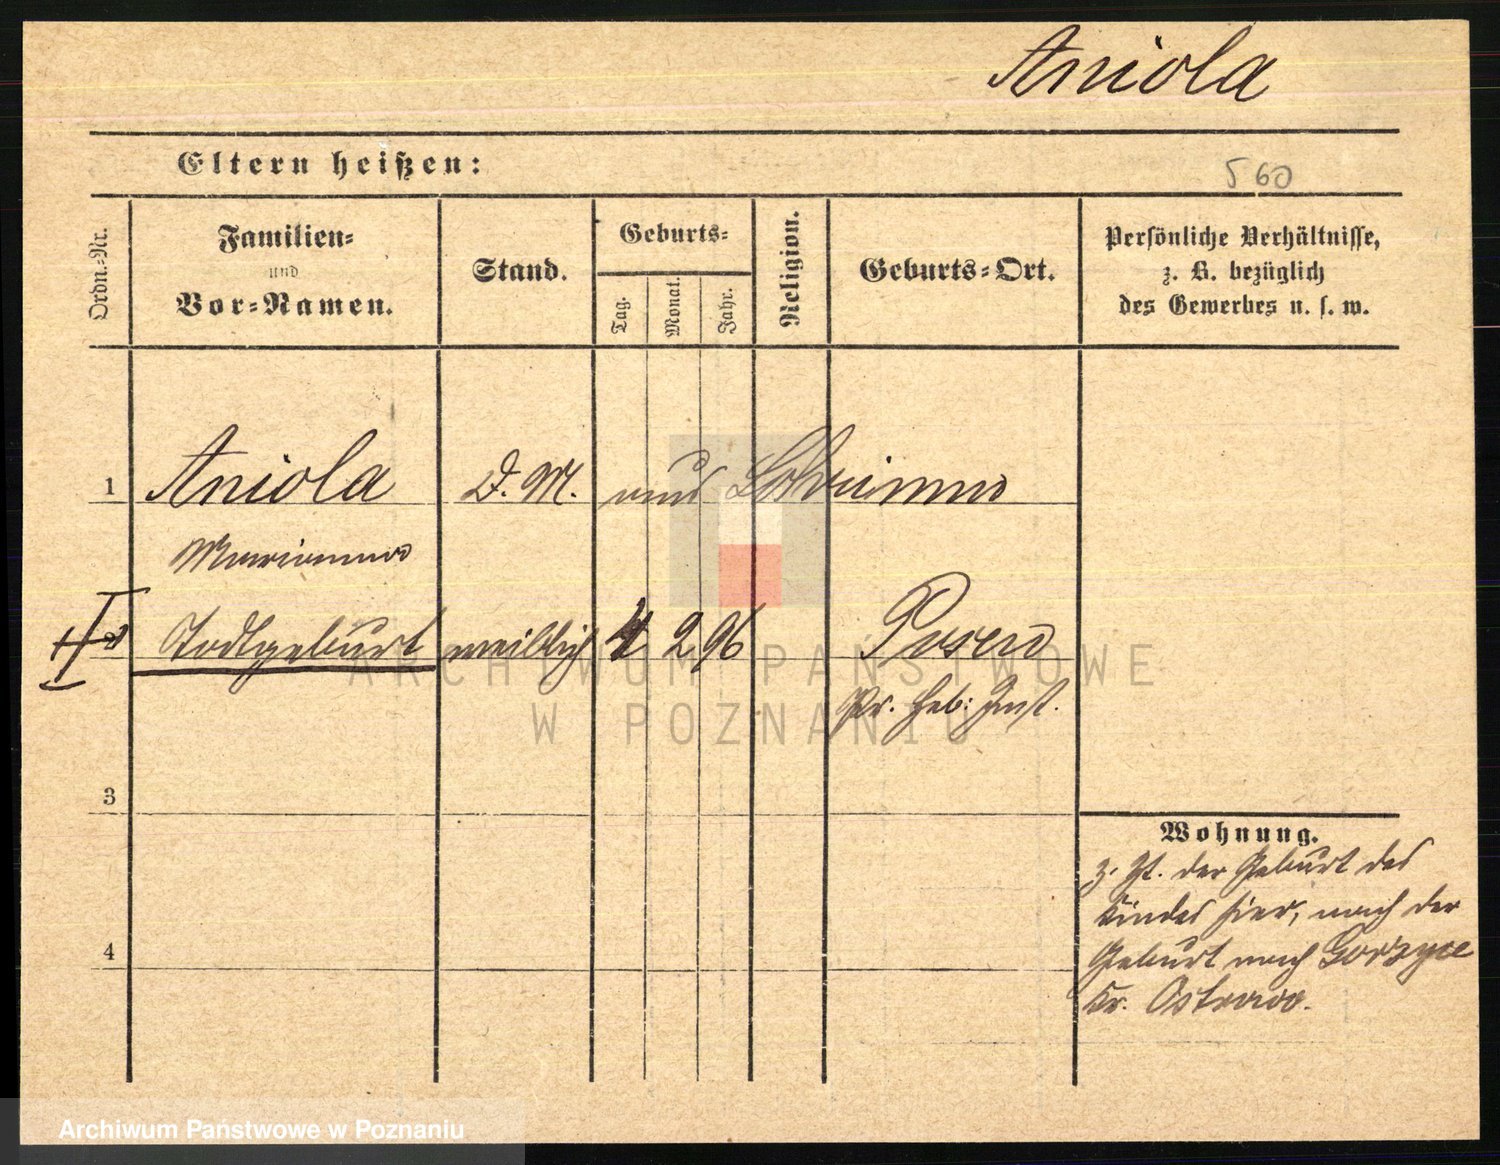 Aniola
Eltern heißen:
560
Ordn.-Nr.
Familien-
und
Vor-Namen.
Stand.
Geburts-
Tag.
Monat.
Jahr.
Religion.
Geburts-Ort.
Persönliche Verhältnisse,
z. B. bezüglich
des Gewerbes u. s. w.
1 Aniola D. M. aus
Marianna
I Todtgeburt weiblich 4 2 96 Posen
Pr. Heb: Inst.
3
Wohnung.
z. Zt. der Geburt des
Kindes hier, nach der
4 Geburt nach Gorzyce
Kr. Ostrowo.
ARCHIWUM PAŃSTWOWE
W POZNANIU
Archiwum Państwowe w Poznaniu